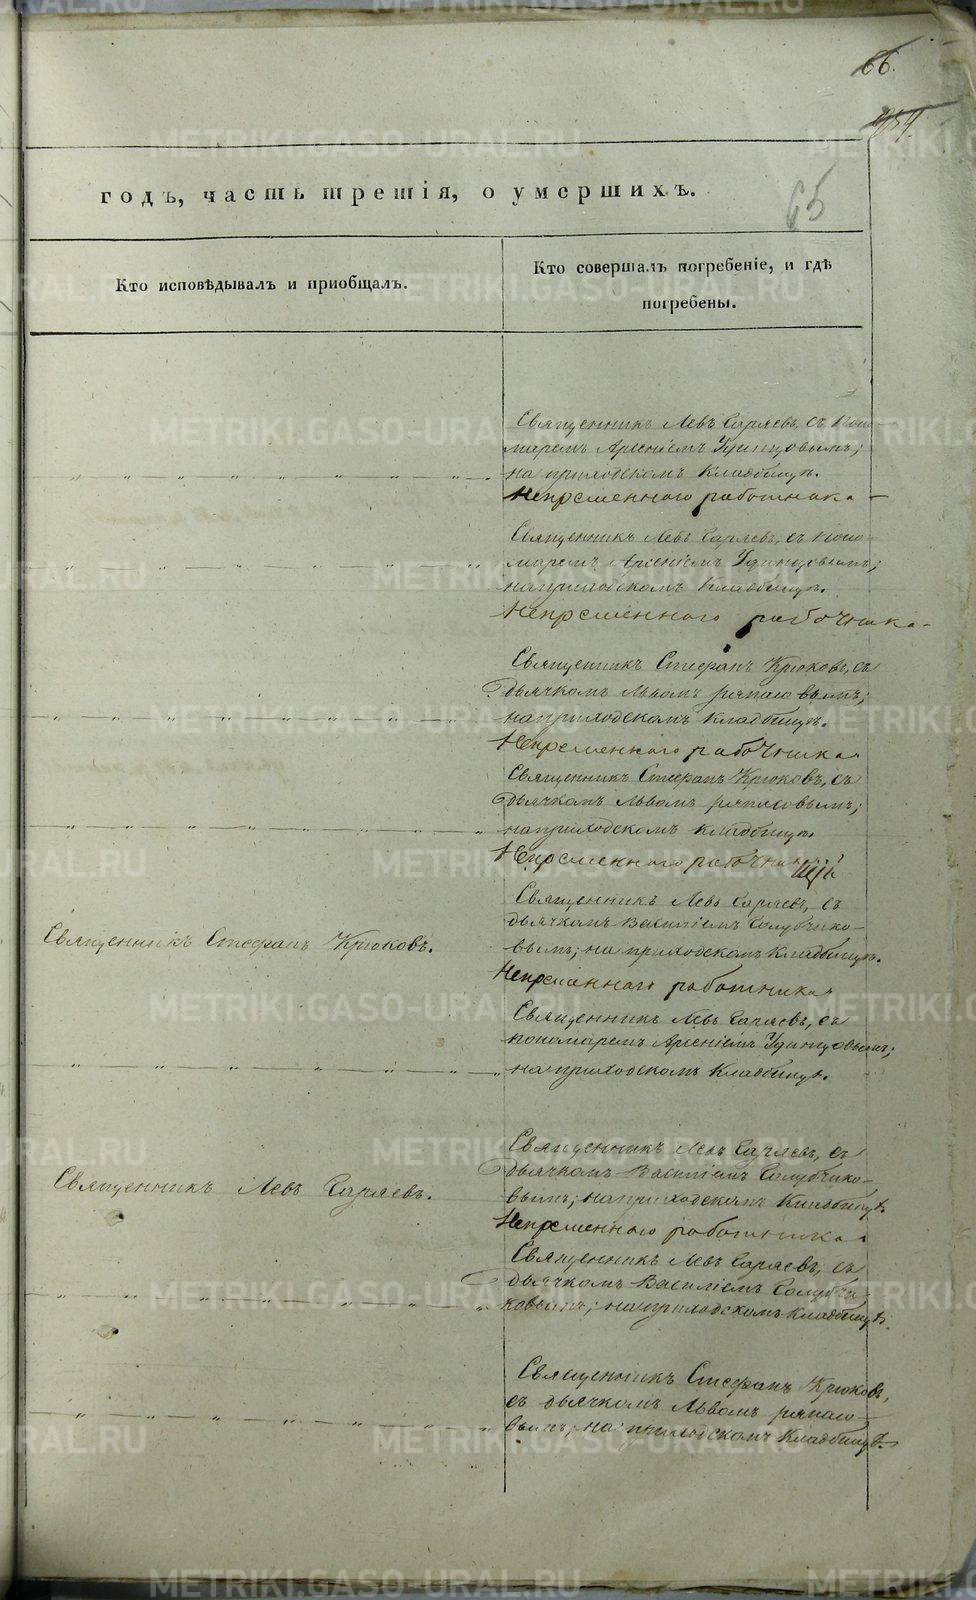 66.
годъ, часть третія, о умершихъ.
65
Кто исповѣдывалъ и приобщалъ.
Кто совершалъ погребеніе, и гдѣ
погребены.
Священникъ Левъ Саряевъ, съ поно-
маремъ Арсеніемъ Удинцовымъ;
на приходскомъ кладбищѣ.
Непремѣннаго работника
Священникъ Левъ Саряевъ, съ поно-
маремъ Арсеніемъ Удинцовымъ;
на приходскомъ кладбищѣ.
Непремѣннаго рабочника
Священникъ Стефанъ Крюковъ, съ
дьячкомъ Львомъ
на приходскомъ кладбищѣ.
Непремѣннаго рабочника
Священникъ Стефанъ Крюковъ, съ
дьячкомъ Львомъ
на приходскомъ кладбищѣ.
Непремѣннаго
Священникъ Левъ Саряевъ, съ
дьячкомъ Василіемъ Голубчико-
Священникъ Стефанъ Крюковъ.
вымъ; на приходскомъ кладбищѣ.
Непремѣннаго работника
Священникъ Левъ Саряевъ, съ
пономаремъ Арсеніемъ Удинцовымъ;
на приходскомъ кладбищѣ.
Священникъ Левъ Саряевъ, съ
дьячкомъ Василіемъ Голубчико-
Священникъ Левъ Саряевъ.
вымъ; на приходскомъ кладбищѣ.
Непремѣннаго работника
Священникъ Левъ Саряевъ, съ
дьячкомъ Василіемъ Голубчи-
ковымъ; на приходскомъ кладбищѣ.
Священникъ Стефанъ Крюковъ,
съ дьячкомъ Львомъ
вымъ; на приходскомъ кладбищѣ.
METRIKI.GASO-URAL.RU